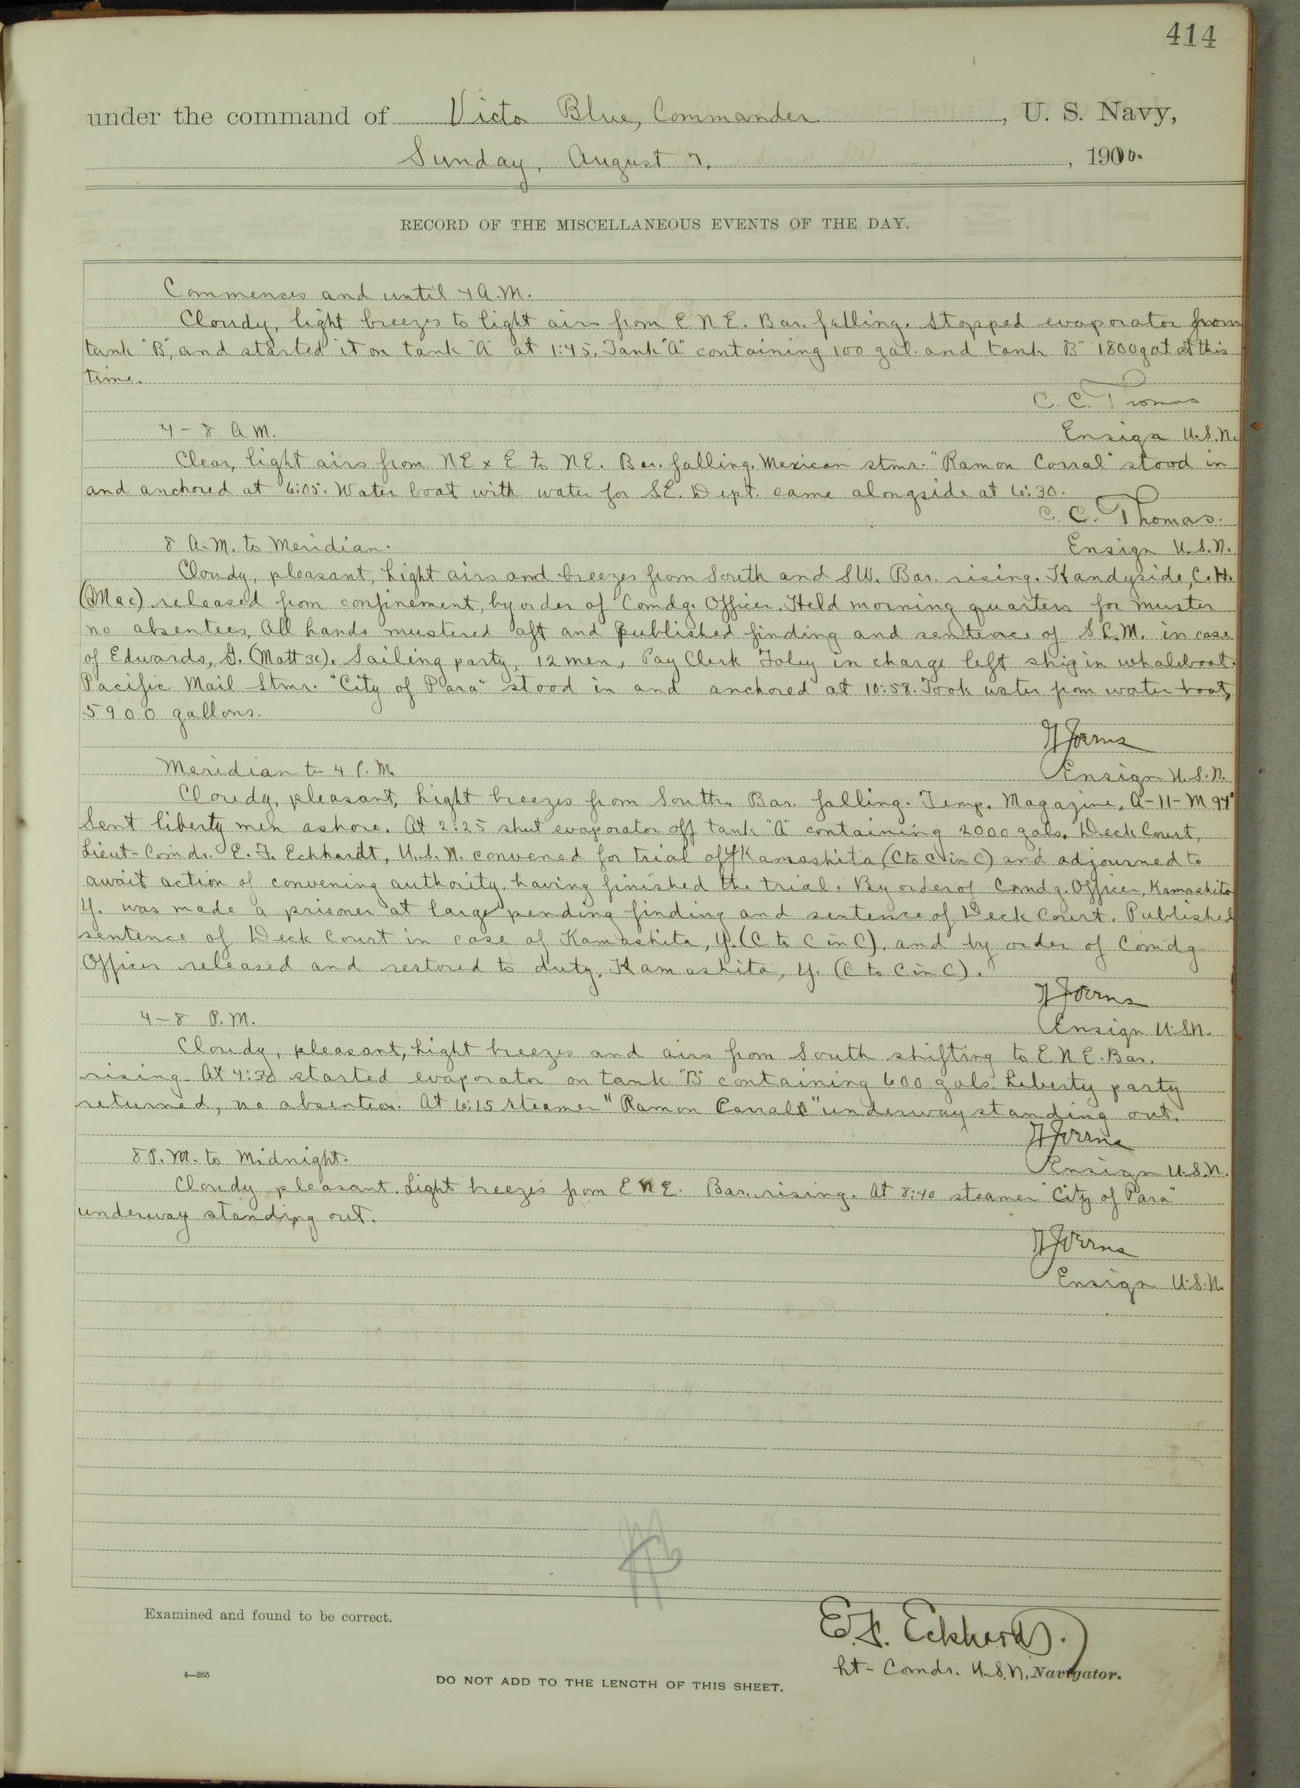 414
under the command of Victor Blue, Commander, U. S. Navy,
Sunday, August 7, 1910.
RECORD OF THE MISCELLANEOUS EVENTS OF THE DAY.
Commences and until 4 A.M.
Cloudy, light breezes to light airs from E N E. Bar. falling. Stopped evaporator from
tank "B", and started it on tank "A" at 1:45. Tank "A" containing 100 gal. and tank "B" 1800 gal at this
time.
C. C. Thomas
4-8 A M.
Ensign U.S.N.
Clear, light airs from NE x E to NE. Bar. falling. Mexican stmr. "Ramon Corral" stood in
and anchored at 6:05. Water boat with water for S.E. Dept. came alongside at 6:30.
C. C. Thomas.
8 A.M. to Meridian.
Ensign U.S.N.
Cloudy, pleasant, light airs and breezes from South and SW. Bar. rising. Handyside, C.H.
(Mac) released from confinement, by order of Comdg. Officer. Held morning quarters for muster
no absentees, All hands mustered aft and published finding and sentence of S.C.M. in case
of Edwards, G. (Matt 3c). Sailing party, 12 men, Pay Clerk Foley in charge left ship in whaleboat.
Pacific Mail Stmr. "City of Para" stood in and anchored at 10:58. Took water from water boat,
5900 gallons.
Ensign U.S.N.
Meridian to 4 P.M.
Cloudy, pleasant, light breezes from South. Bar. falling. Temp. Magazine, A-11-M 94°
Sent liberty men ashore. At 2:25 shut evaporator off tank "A" containing 2000 gals. Deck Court,
Lieut-Comdr. E. F. Eckhardt, U.S.N. convened for trial of Y Kamashita, (C to C in C) and adjourned to
await action of convening authority, having finished the trial. By order of Comdg. Officer, Kamashita
Y. was made a prisoner at large pending finding and sentence of Deck Court. Published
sentence of Deck Court in case of Kamashita, Y. (C to C in C), and by order of Comdg.
Officer released and restored to duty, Kamashita, Y. (C to C in C).
4-8 P.M.
Ensign U.S.N.
Cloudy, pleasant, light breezes and airs from South shifting to E N E. Bar.
rising. At 4:30 started evaporator on tank "B" containing 600 gals. Liberty party
returned, no absentees. At 6:15 steamer "Ramon Corral" underway standing out.
8 P.M. to Midnight.
Ensign U.S.N.
Cloudy pleasant. Light breezes from E N E. Bar. rising. At 8:40 steamer "City of Para"
underway standing out.
Ensign U.S.N.
Examined and found to be correct.
E. F. Eckhardt.
Lt-Comdr. U.S.N., Navigator.
4—265
DO NOT ADD TO THE LENGTH OF THIS SHEET.